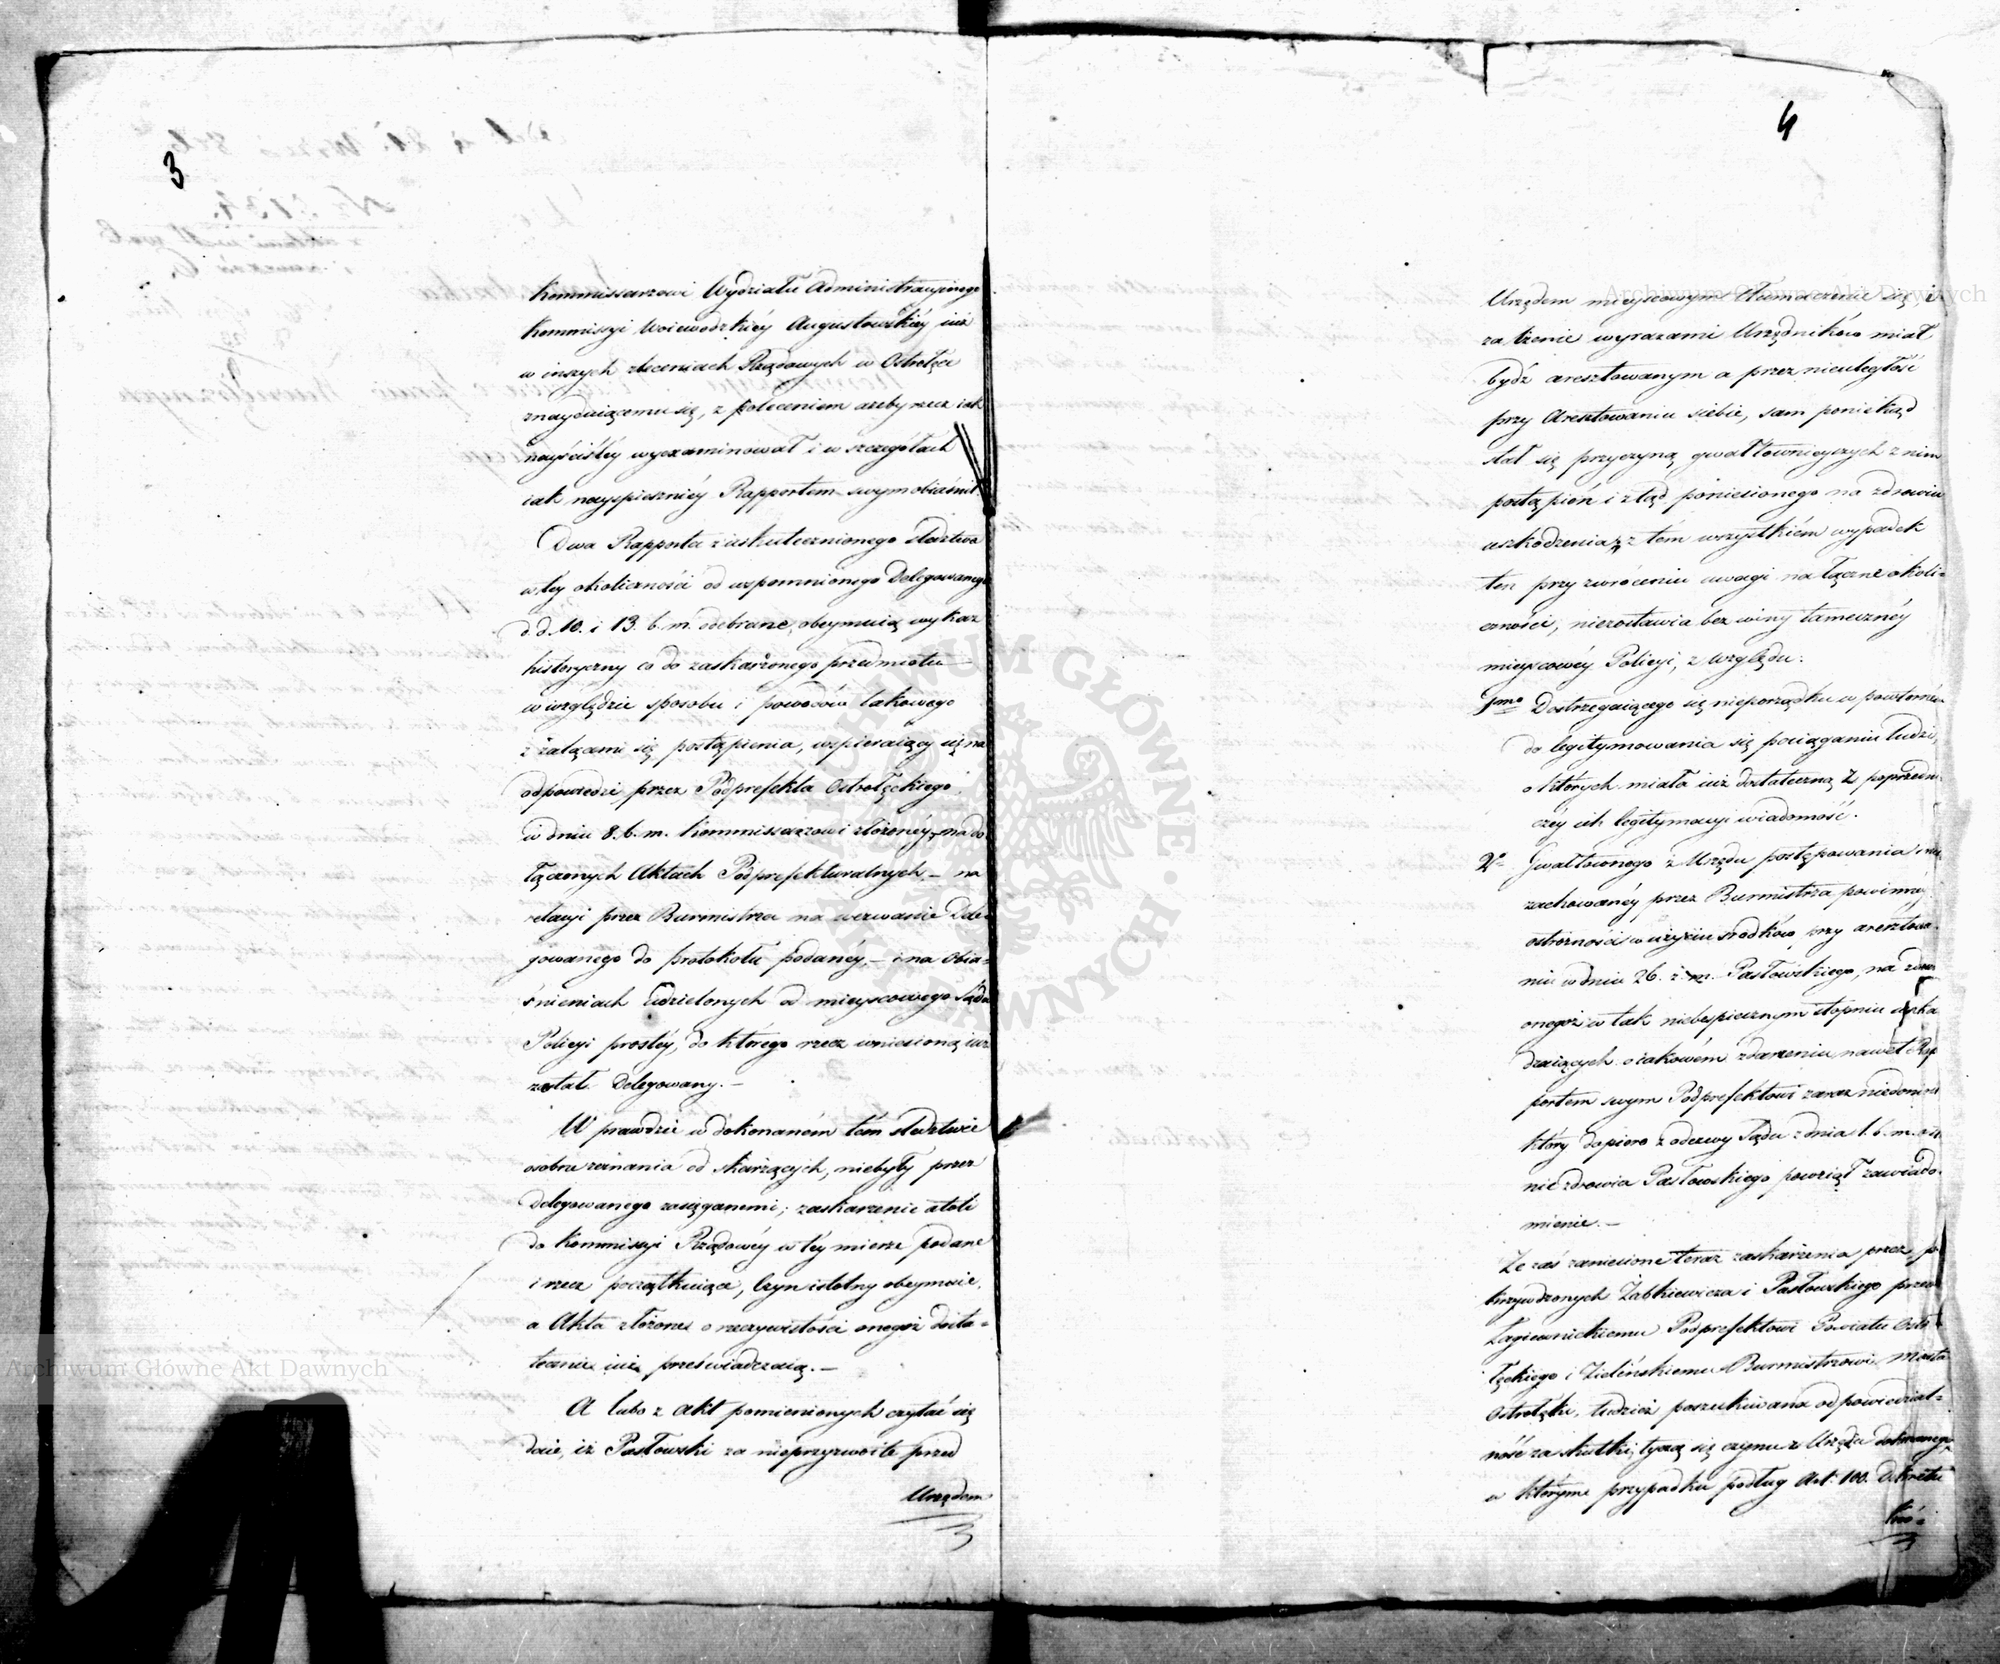 3
Kommissarzowi Wydziału Administracyinego
Kommissyi Woiewodzkiéy Augustowskiéy iuż
w inszych zleceniach Rządowych w Ostrołęce
znayduiącemu się, z poleceniem ażeby rzecz iak
nayściśléy wyexaminował i w szczegółach
iak nayspieszniéy Rapportem swym obiaśnił.
Dwa Rapporta z uskutecznionego śledztwa
w téy okoliczności od wspomnionego Delegowanego
d. d. 10. i 13. b. m. odebrane, obeymuią wykaz
historyczny co do zaskarżonego przedmiotu
w względzie sposobu i powodów takowego
z żalącemi się postąpienia, wspieraiący się na
odpowiedzi przez Podprefekta Ostrołęckiego
w dniu 8. b. m. Kommissarzowi złożonéy, na do
łączonych Aktach Podprefekturalnych, – na
relacyi przez Burmistrza na wezwanie Dele-
gowanego do protokołu podanéy, – i na obia-
śnieniach udzielonych od mieyscowego Sądu
Policyi prostéy, do którego rzecz wniesioną iuż
został Delegowany. –
W prawdzie w dokonaném tém śledztwie
osobne zeznania od skarżących, niebyły przez
Delegowanego zasięganemi; zaskarżenie atoli
do Kommissyi Rządowéy w téy mierze podane
i rzecz początkuiące, Czyn istotny obeymuie,
a Akta złożone o rzeczywistości onegoż dosta-
tecznie iuż przeświadczaią. –
A lubo z akt pomienionych czytać się
daie, iż Pasłowski za nieprzyzwoite przed
Urzędem
4
Urzędem mieyscowym tłumaczenie się i
zelżenie wyrazami Urzędników miał
bydź aresztowanym a przez nieuległość
przy Aresztowaniu siebie, sam poniekąd
stał się przyczyną gwałtownieyszych z nim
postąpień i ztąd poniesionego na zdrowiu
uszkodzenia; z tém wszystkiém wypadek
ten przy zwróceniu uwagi na łączne okoli-
czności, niezostawia bez winy tameczney
mieyscowéy Policyi, z względu:
1mo Dostrzegaiącego się nieporządku w powtórném
do legitymowania się pociąganiu ludzi,
o których miała iuż dostateczną z poprzedni
czéy ich legitymacyi wiadomość.
2o Gwałtownego z Urzędu postępowania i nie
zachowanéy przez Burmistrza powinnéy
ostrożności w użyciu środków przy aresztowa-
niu w dniu 26. z. m. Pasłowskiego, na zdro
onegoż w tak niebespiecznym stopniu
dzaiących o iakowém zdarzeniu nawet Rap
portem swym Podprefektowi zaraz niedoniósł
który dopiero z odezwy Sądu z dnia 1. b. m.
nie zdrowia Pasłowskiego powziął zawiado-
mienie. –
Że zaś zaniesione teraz zaskarżenia przez po
krzywdzonych Żabkiewicza i Pasłowskiego przeciw
Łagiewnickiemu Podprefektowi Powiatu Ostro
łęckiego i Zielińskiemu Burmistrzowi Miasta
Ostrołęki, tudzież poszukiwana odpowiedzial-
ność za skutki, tyczą się czynu z Urzędu dokonanego
w którym przypadku podług Art. 100. Dekretu
Kró-